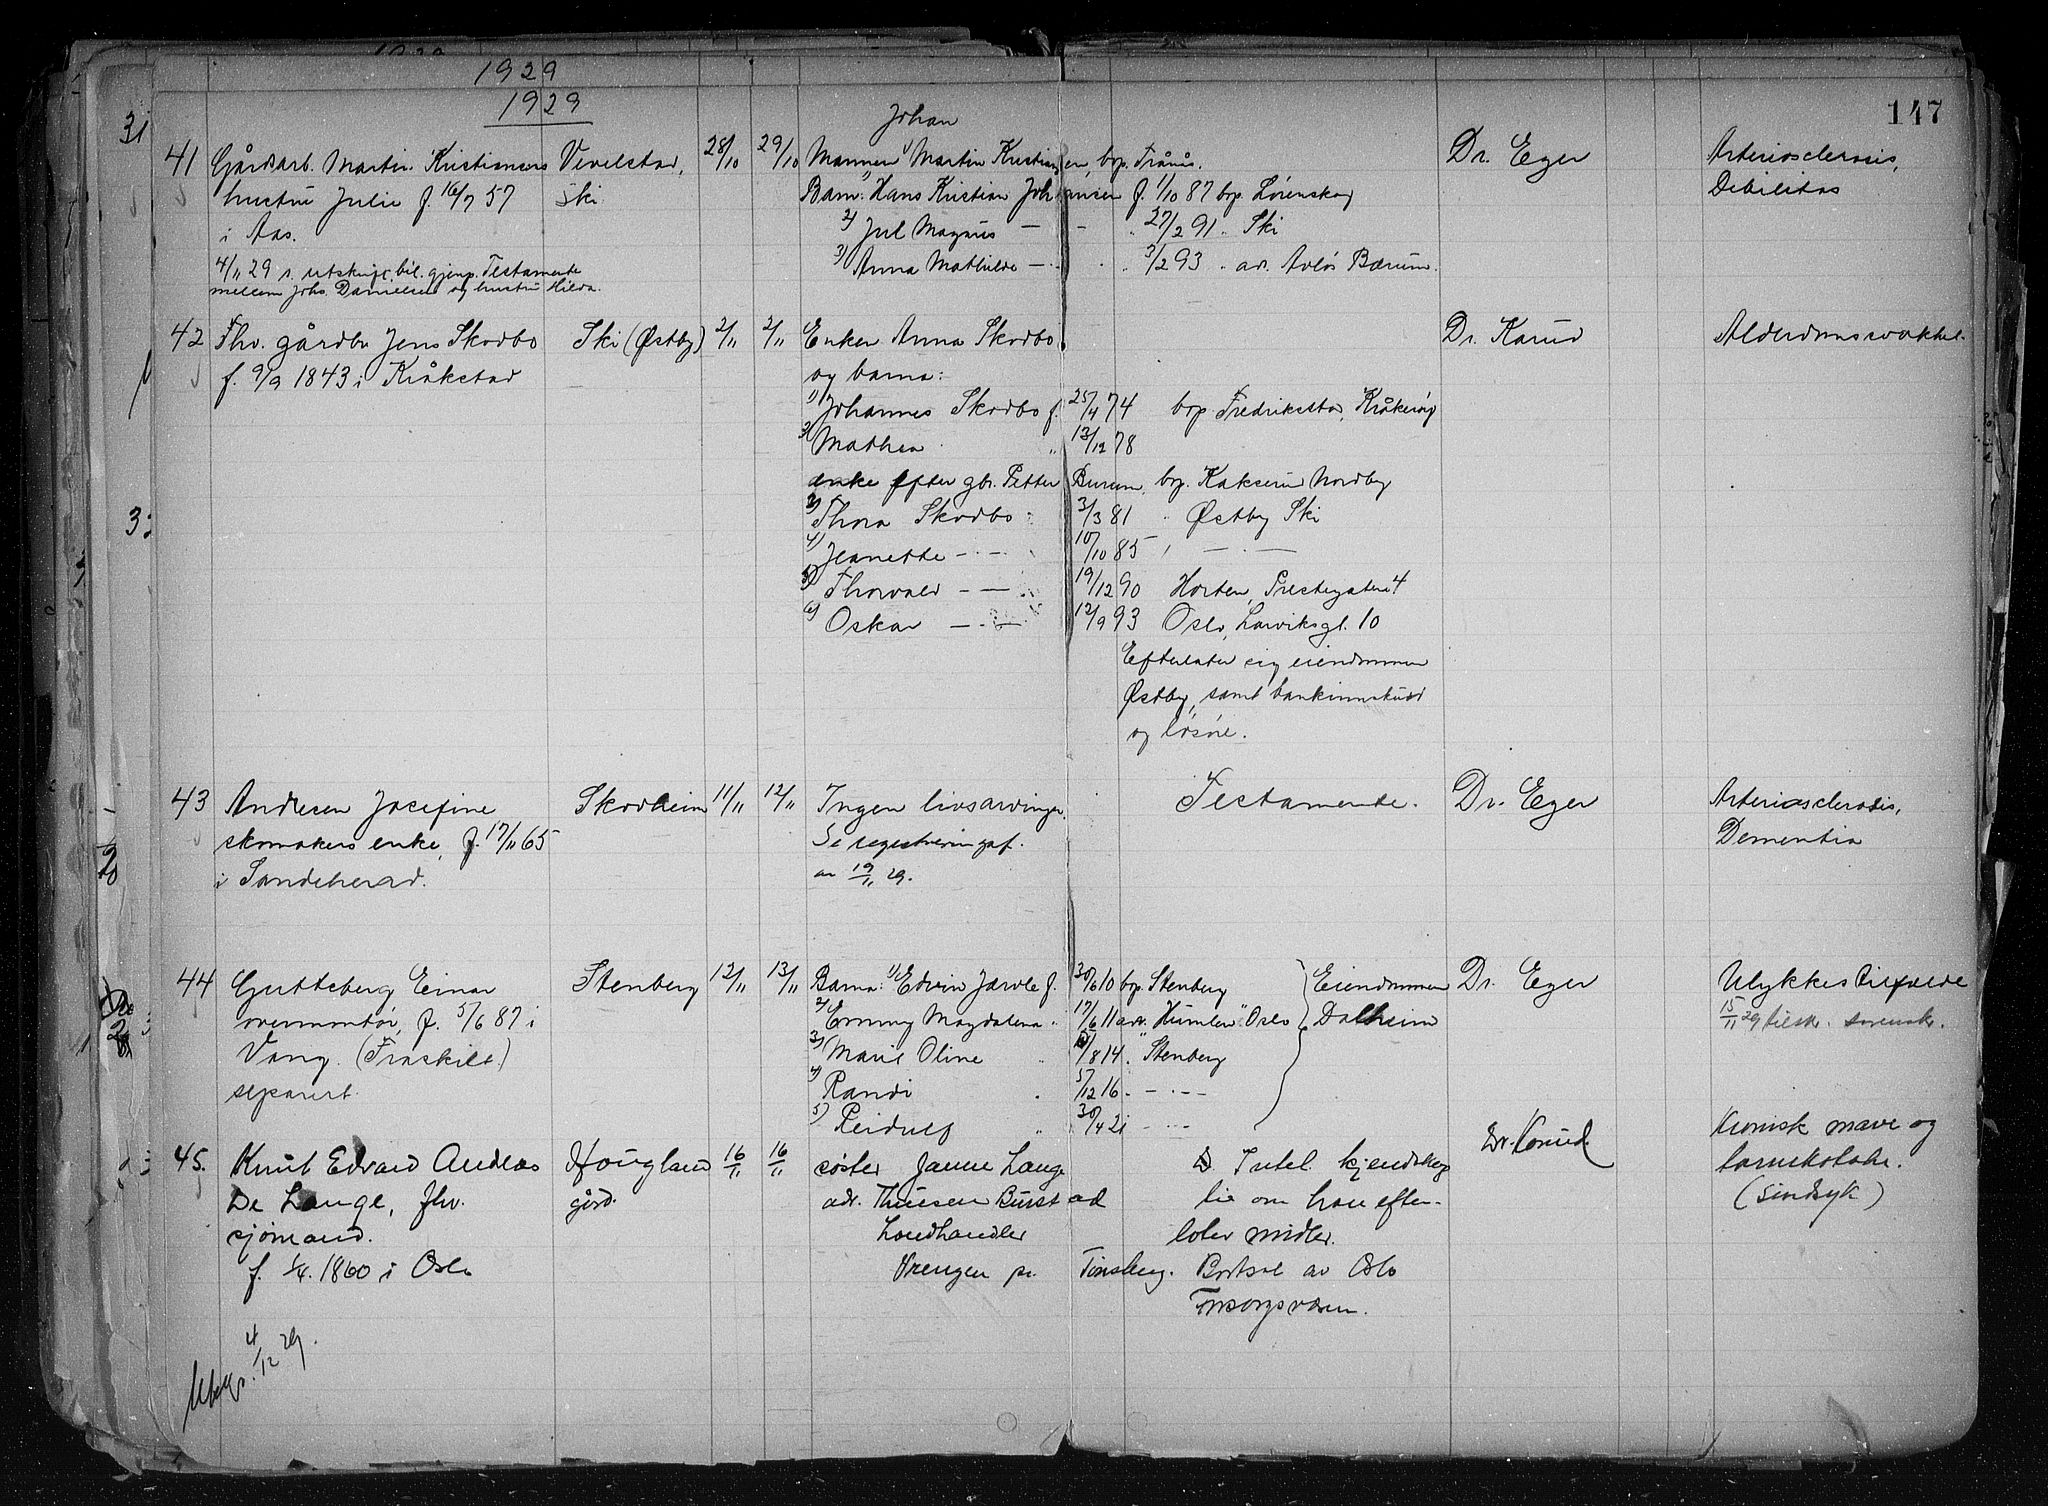 1929
147
1929
Johan
41 Gårdsarb. Martin Kristiansens Vevelstad, 28/10 29/10 Mannen Martin Kristiansen, bop. Trånås. Dr. Eger Arteriosclerosis,
hustru Julie f. 16/7 57 Ski Barn: Hans Kristian Johansen f. 1/10 87 bop. Lørenskog Debilitas
i Aas. 2) Jul Magnus — - 27/2 91 . Ski
3) Anna Mathilde — 3/2 93 . adr. Avløs Bærum.
4/11 29 s. utskrift bil. gjenp. Testamente
mellem Johs. Danielsen og hustru Hilda.
42 Fhv. gårdbr Jens Skodbo Ski (Østby) 2/11 2/11 Enken Anna Skodbo Dr. Karud Alderdomssvakhet
f. 9/9 1843 i Kråkstad og barna:
1) Johannes Skodbo f. 25/4 74 bop Fredrikstad, Kråkerøy
2) Mathea " 13/12 78
enke efter gbr. Petter Burum, bop. Kakserud Nordby
3) Thora Skodbo 3/3 81 " Østby Ski
4) Jeanette — 10/10 85 " — . —
5) Thorvald — — 19/12 90 Horten, Prestegaten 4
6) Oskar — . — 12/9 93 Oslo, Larviksgt. 10
Efterlater sig eiendommen
Østby, samt bankinnskudd
og løsøre.
43 Andresen Josefine Skodheim 11/11 12/11 Ingen livsarvinger. Testamente. Dr. Eger Arteriosclerosis,
skomakers enke, f. 17/11 65 Se registreringsf. Dementia
i Sandeherad. av 19/11 29.
44 Gutteberg, Einar Stenberg 12/11 13/11 Barna: 1) Edvin Jarle f. 30/6 10 bop. Stenberg Eiendommen Dr. Eger Ulykkestilfælde
overmontør, f. 5/6 87 i 2) Emmy Magdalena " 17/6 11 adr. Humlen" Oslo Dalheim 15/11 29 tilskr. sorensk.
Vang. (Fraskilt) 3) Marit Oline " /8 14 . Stenberg
separert. 4) Randi . 5/12 16 . - . - -
5) Reidulf " 30/4 21 - . -
45. Knut Edvard Andreas Hougland 16/11 16/11 søster Janne Lange Intet kjendskap Dr. Karud. Kronisk mave og
De Lange, fhv. gård. adr. Thuesen Burstad til om han efter- tarmkatarr.
sjømand. Landhandler later midler. (sindsyk)
f. 1/4. 1860 i Oslo Vrengen pr. Tønsberg. Bortsat av Oslo
Forsorgsvæsen.
4/12 29.